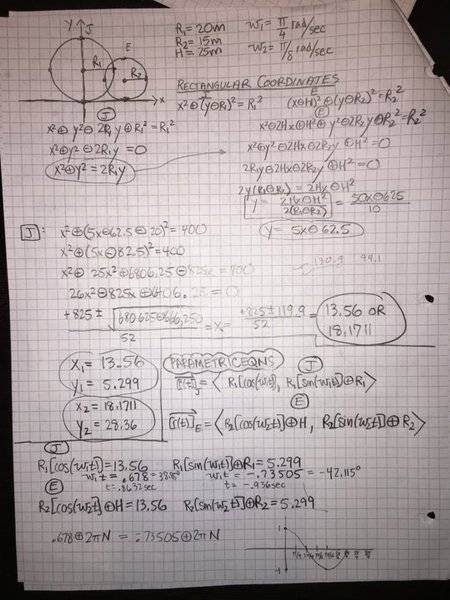 Y J
E
R₁
R₂
x
R₁ = 20m
R₂ = 15m
H = 25m
w₁ = π/4 rad/sec
w₂ = π/8 rad/sec
RECTANGULAR COORDINATES
J
x² ⊕ (y⊖R₁)² = R₁²
E
(x⊖H)² ⊕ (y⊖R₂)² = R₂²
J
x² ⊕ y² ⊖ 2R₁y ⊕ R₁² = R₁²
x² ⊕ y² ⊖ 2R₁y = 0
x² ⊕ y² = 2R₁y
E
x² ⊖ 2Hx ⊕ H² ⊕ y² ⊖ 2R₂y ⊕ R₂² = R₂²
x² ⊕ y² ⊖ 2Hx ⊖ 2R₂y ⊕ H² = 0
2R₁y ⊖ 2Hx ⊖ 2R₂y ⊕ H² = 0
2y(R₁⊖R₂) = 2Hx ⊖ H²
y = 2Hx ⊖ H² / 2(R₁⊖R₂) = 50x ⊖ 625 / 10
y = 5x ⊖ 62.5
J :
x² ⊕ (5x ⊖ 62.5 ⊖ 20)² = 400
x² ⊕ (5x ⊖ 82.5)² = 400
x² ⊕ 25x² ⊕ 6806.25 ⊖ 825x = 400
26x² ⊖ 825x ⊕ 6406.25 = 0
+825 ± √680625 ⊖ 666,250 / 52 = x₁ = +825 ± 119.9 / 52 = 13.56 OR 18.1711
x₁ = 13.56
y₁ = 5.299
x₂ = 18.1711
y₂ = 28.36
PARAMETRIC EQNS
J
[r(t)]_J = < R₁[cos(w₁t)], R₁[sin(w₁t)] ⊕ R₁ >
E
[r(t)]_E = < R₂[cos(w₂t)] ⊕ H, R₂[sin(w₂t)] ⊕ R₂ >
J
R₁[cos(w₁t)] = 13.56 R₁[sin(w₁t)] ⊕ R₁ = 5.299
w₁t = .678 w₁t = -.73505 = -42.115°
t = .8632 sec t = -.936 sec
E
R₂[cos(w₂t)] ⊕ H = 13.56 R₂[sin(w₂t)] ⊕ R₂ = 5.299
.678 ⊕ 2πN = -.73505 ⊕ 2πN
1
-1